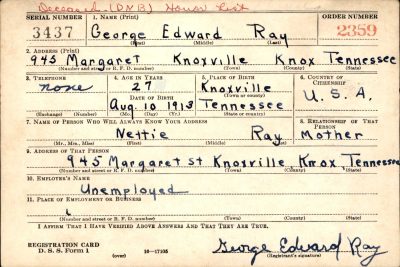 Deceased (DNB) House List
SERIAL NUMBER 1. NAME (Print) ORDER NUMBER
3437 George Edward Ray 2359
(First) (Middle) (Last)
2. ADDRESS (Print)
945 Margaret Knoxville Knox Tennessee
(Number and street or R. F. D. number) (Town) (County) (State)
3. TELEPHONE 4. AGE IN YEARS 5. PLACE OF BIRTH 6. COUNTRY OF CITIZENSHIP
none 27 Knoxville
(Town or county)
DATE OF BIRTH U. S. A.
Aug. 10 1913 Tennessee
(Exchange) (No.) (Mo.) (Day) (Yr.) (State or country)
7. NAME OF PERSON WHO WILL ALWAYS KNOW YOUR ADDRESS 8. RELATIONSHIP OF THAT PERSON
Nettie Ray Mother
(Mr., Mrs., Miss) (First) (Middle) (Last)
9. ADDRESS OF THAT PERSON
945 Margaret St Knoxville Knox Tennessee
(Number and street or R. F. D. number) (Town) (County) (State)
10. EMPLOYER'S NAME
Unemployed
11. PLACE OF EMPLOYMENT OR BUSINESS
(Number and street or R. F. D. number) (Town) (County) (State)
I AFFIRM THAT I HAVE VERIFIED ABOVE ANSWERS AND THAT THEY ARE TRUE.
REGISTRATION CARD
D. S. S. Form 1 (over) 16—17105 George Edward Ray
(Registrant's signature)